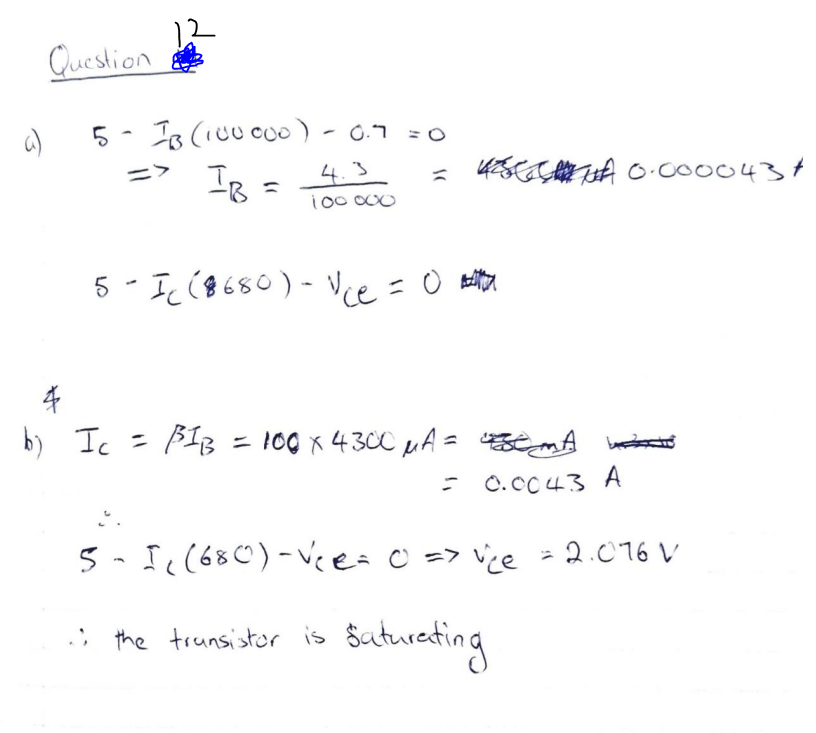 Question 12
a) 5 - I_B (100000) - 0.7 = 0
=> I_B = 4.3 / 100000 = 0.000043 A
5 - I_C (8680) - V_ce = 0
b) I_C = βI_B = 100 × 4300 μA =
= 0.0043 A
∴
5 - I_C (680) - V_ce = 0 => V_ce = 2.076 V
∴ the transistor is saturating